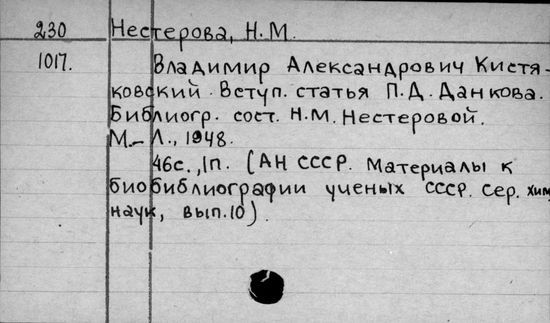 230 Нестерова, Н.М.
1017. Владимир Александрович Кистя-
ковский. Вступ. статья П.Д. Данкова.
Библиогр. сост. Н.М. Нестеровой.
М.-Л., 1948.
46с., 1п. (АН СССР. Материалы к
биобиблиографии ученых СССР. Сер. хим.
наук, вып.10).